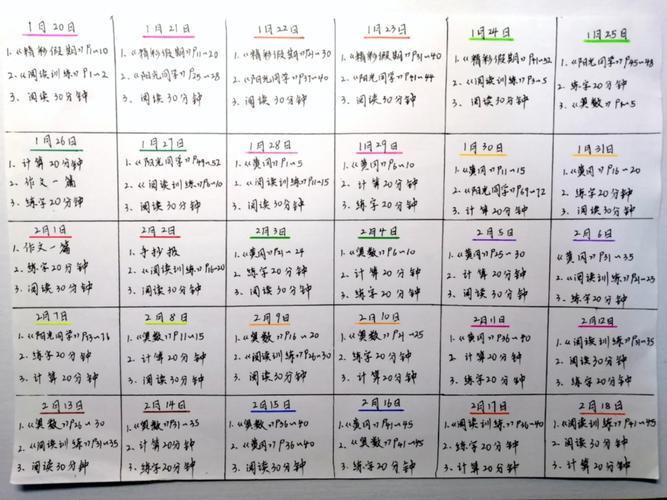 1月20日
1.《精彩假期》P1~10
2.《阅读训练》P1~2
3. 阅读30分钟
1月21日
1.《精彩假期》P11~20
2.《阳光同学》P25~28
3. 阅读30分钟
1月22日
1.《精彩假期》P21~30
2.《阳光同学》P37~40
3. 阅读30分钟
1月23日
1.《精彩假期》P31~40
2.《阳光同学》P41~44
3. 阅读30分钟
1月24日
1.《精彩假期》P41~52
2.《阅读训练》P3~5
3. 阅读30分钟
1月25日
1.《阳光同学》P45~48
2. 练字20分钟
3.《奥数》P1~5
1月26日
1. 计算20分钟
2. 作文一篇
3. 练字20分钟
1月27日
1.《阳光同学》P49~52
2.《阅读训练》P6~10
3. 阅读30分钟
1月28日
1.《黄冈》P1~5
2.《阅读训练》P11~15
3. 阅读30分钟
1月29日
1.《黄冈》P6~10
2. 计算20分钟
3. 练字20分钟
1月30日
1.《黄冈》P11~15
2.《阳光同学》P69~72
3. 计算20分钟
1月31日
1.《黄冈》P16~20
2. 练字20分钟
3. 阅读30分钟
2月1日
1. 作文一篇
2. 练字20分钟
3. 阅读30分钟
2月2日
1. 手抄报
2.《阅读训练》P16~20
3. 阅读30分钟
2月3日
1.《黄冈》P21~24
2. 练字20分钟
3. 阅读30分钟
2月4日
1.《奥数》P6~10
2. 计算20分钟
3. 阅读30分钟
2月5日
1.《黄冈》P25~30
2. 计算20分钟
3. 阅读30分钟
2月6日
1.《黄冈》P31~35
2.《阅读训练》P21~25
3. 练字20分钟
2月7日
1.《阳光同学》P73~76
2. 练字20分钟
3. 计算20分钟
2月8日
1.《奥数》P11~15
2. 计算20分钟
3. 阅读30分钟
2月9日
1.《奥数》P16~20
2.《阅读训练》P26~30
3. 阅读30分钟
2月10日
1.《奥数》P21~25
2. 练字20分钟
3. 阅读30分钟
2月11日
1.《黄冈》P36~40
2. 计算20分钟
3. 练字20分钟
2月12日
1.《阅读训练》P31~35
2. 阅读30分钟
2月13日
1.《奥数》P26~30
2.《阅读训练》P31~35
3. 阅读30分钟
2月14日
1.《奥数》P31~35
2. 计算20分钟
3. 练字20分钟
2月15日
1.《奥数》P36~40
2.《黄冈》P36~40
3. 阅读30分钟
2月16日
1.《黄冈》P41~45
2.《奥数》P41~45
3. 练字20分钟
2月17日
1.《阅读训练》P36~40
2.《黄冈》P41~45
3. 计算20分钟
2月18日
1.《阅读训练》P41~45
2. 阅读30分钟
3. 计算20分钟